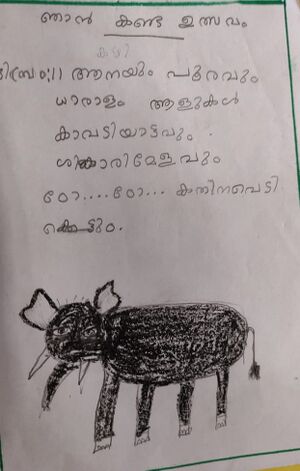 ഞാൻ കണ്ട ഉത്സവം
ആനയും പൂരവും
ധാരാളം ആളുകൾ
കാവടിയാട്ടവും.
ശിങ്കാരിമേളവും
ഠോ....ഠോ... കതിനവെടി
കെട്ടും.